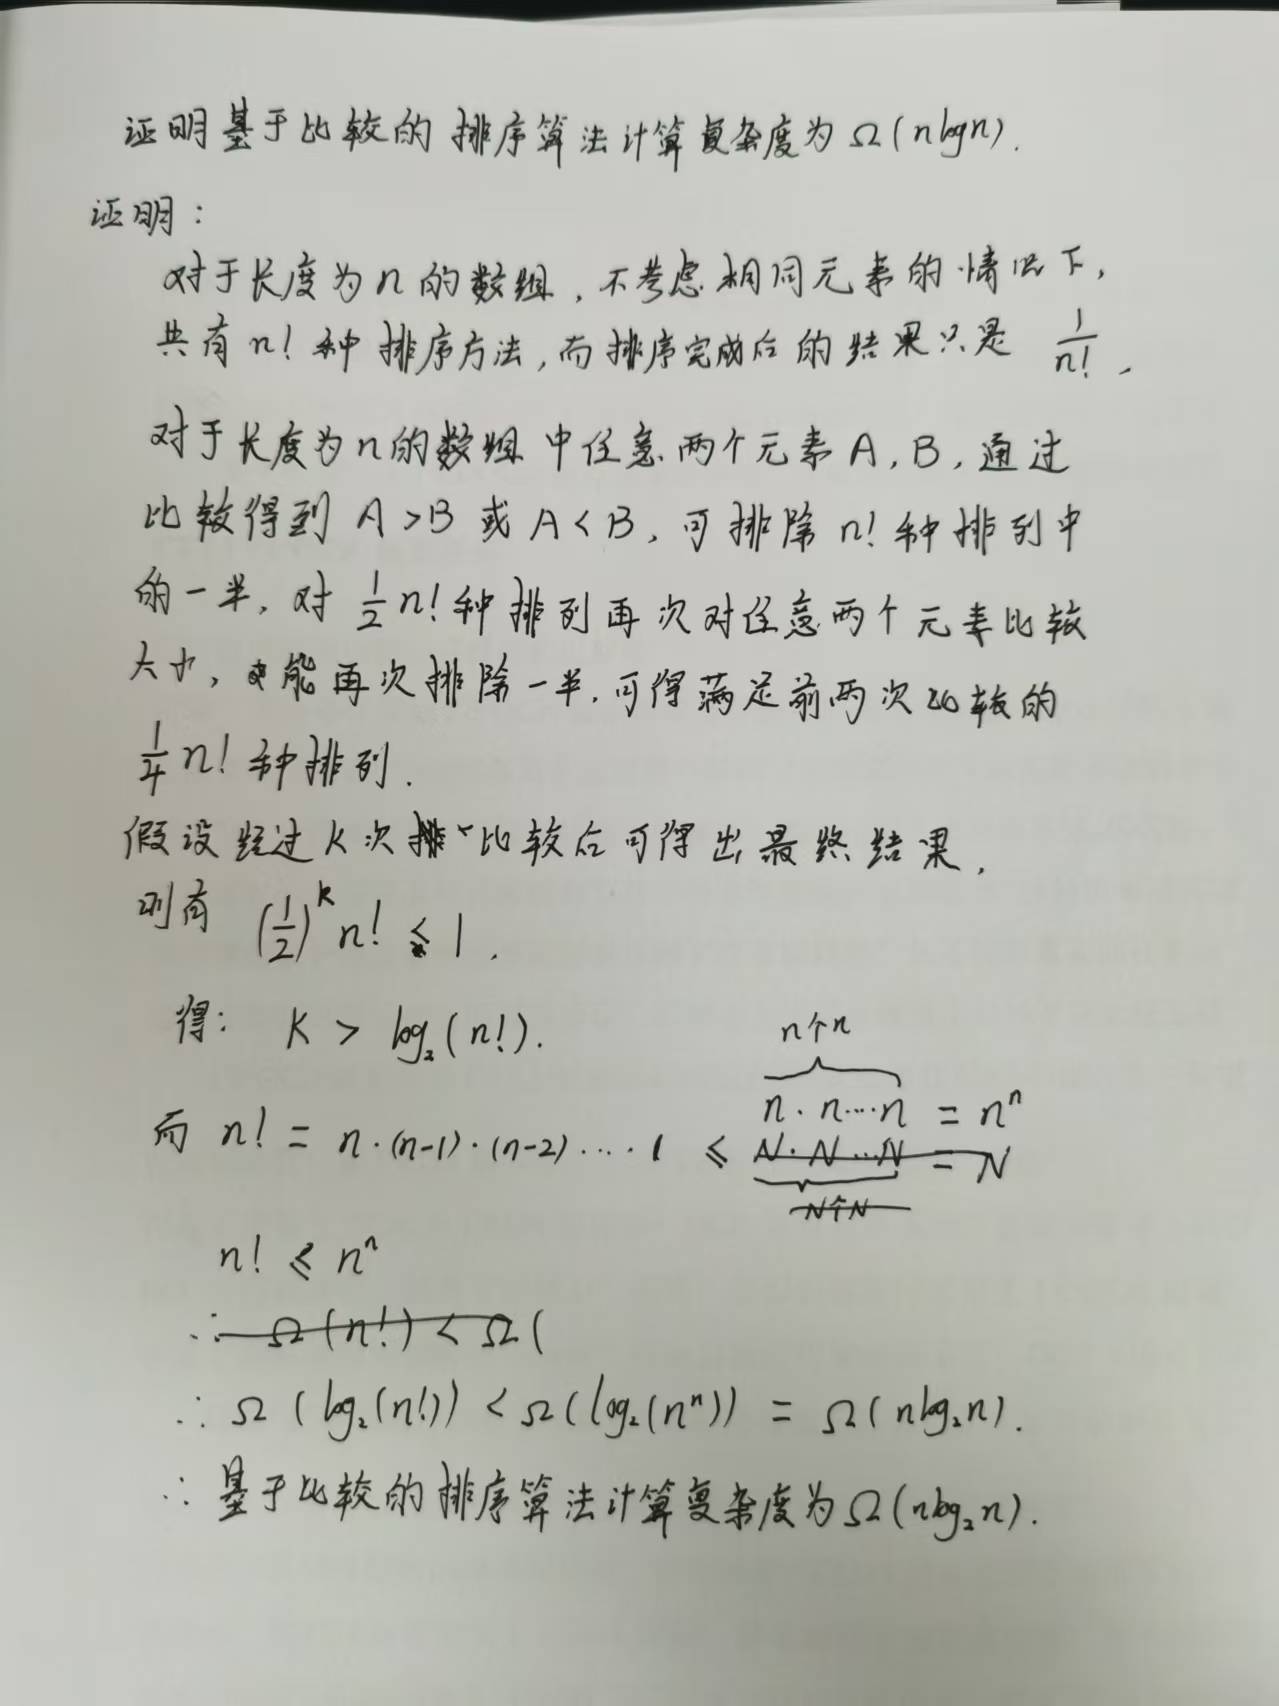 证明基于比较的排序算法计算复杂度为 Ω(nlogn).
证明：
对于长度为n的数组，不考虑相同元素的情况下，
共有n!种排序方法，而排序完成后的结果只是 1/n!，
对于长度为n的数组中任意两个元素A，B，通过
比较得到 A>B 或 A<B，可排除 n!种排列中
的一半，对 1/2 n!种排列再次对任意两个元素比较
大小，能再次排除一半，可得满足前两次比较的
1/4 n!种排列.
假设经过K次比较后可得出最终结果，
则有 (1/2)^K n! ≤ 1.
得： K > log₂(n!).
n个n
n·n…n = nⁿ
而 n! = n·(n-1)·(n-2)·…·1 ≤ N·N…N = N
N个N
n! ≤ nⁿ
∴ Ω(n!) < Ω(
∴ Ω(log₂(n!)) < Ω(log₂(nⁿ)) = Ω(nlog₂n).
∴ 基于比较的排序算法计算复杂度为Ω(nlog₂n).